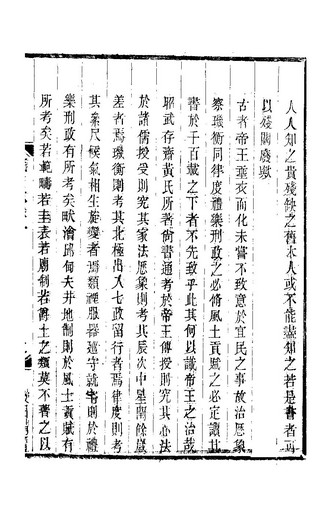 人人知之貴殘缺之舊本人或不能盡知之若是書者可
以殘闕廢歟
古者帝王垂衣而化未嘗不致意於宜民之事故治曆象
察璣衡同律度禮樂刑政之必脩風土貢賦之必定讀其
書於千百載之下者不先致乎此其何以識帝王之治哉
昭武存齋黃氏所著尚書通考於帝王傳授則究其心法
於諸儒授受則究其家法曆象則考其辰次中星閏餘歲
差者焉璣衡則考其北極出入七政留行者焉律度則考
其彖尺候氣相生旋變者焉類禋服器巡守就宅則於禮
樂刑政有所考矣畎澮邱甸夫井地制則於風土貢賦有
所考矣若範疇若圭表若廟制若爵土之類莫不著之以